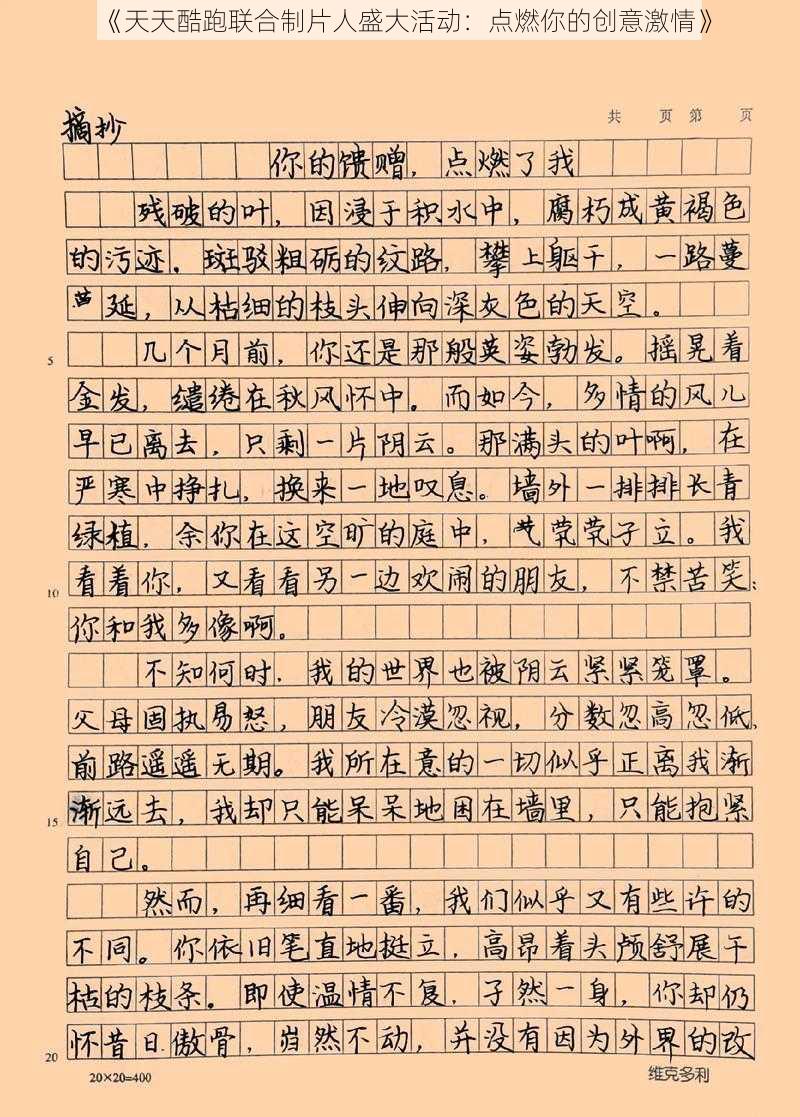 《天天酷跑联合制片人盛大活动：点燃你的创意激情》
共 页 第 页
摘抄
你的馈赠，点燃了我
残破的叶，因浸于积水中，腐朽成黄褐色
的污迹．斑驳粗砺的纹路，攀上躯干，一路蔓
延，从枯细的枝头伸向深灰色的天空。
5 几个月前，你还是那般英姿勃发。摇晃着
金发，缱绻在秋风怀中。而如今，多情的风儿
早已离去，只剩一片阴云。那满头的叶啊，在
严寒中挣扎，换来一地叹息。墙外一排排长青
绿植，余你在这空旷的庭中，茕茕孑立。我
10 看着你，又看看另一边欢闹的朋友，不禁苦笑：
你和我多像啊。
不知何时．我的世界也被阴云紧紧笼罩。
父母固执易怒，朋友冷漠忽视，分数忽高忽低，
前路遥遥无期。我所在意的一切似乎正离我渐
15 渐远去，我却只能呆呆地困在墙里，只能抱紧
自己。
然而，再细看一番，我们似乎又有些许的
不同。你依旧笔直地挺立，高昂着头颅舒展干
枯的枝条。即使温情不复，孑然一身，你却仍
20 怀昔日傲骨，岿然不动，并没有因为外界的改
20×20=400
维克多利